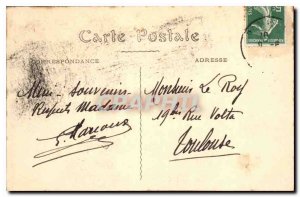 Carte Postale
CORRESPONDANCE
ADRESSE
Mille souvenirs
Respects Madame
Monsieur Le Roy
19 bis Rue Volta
Toulouse